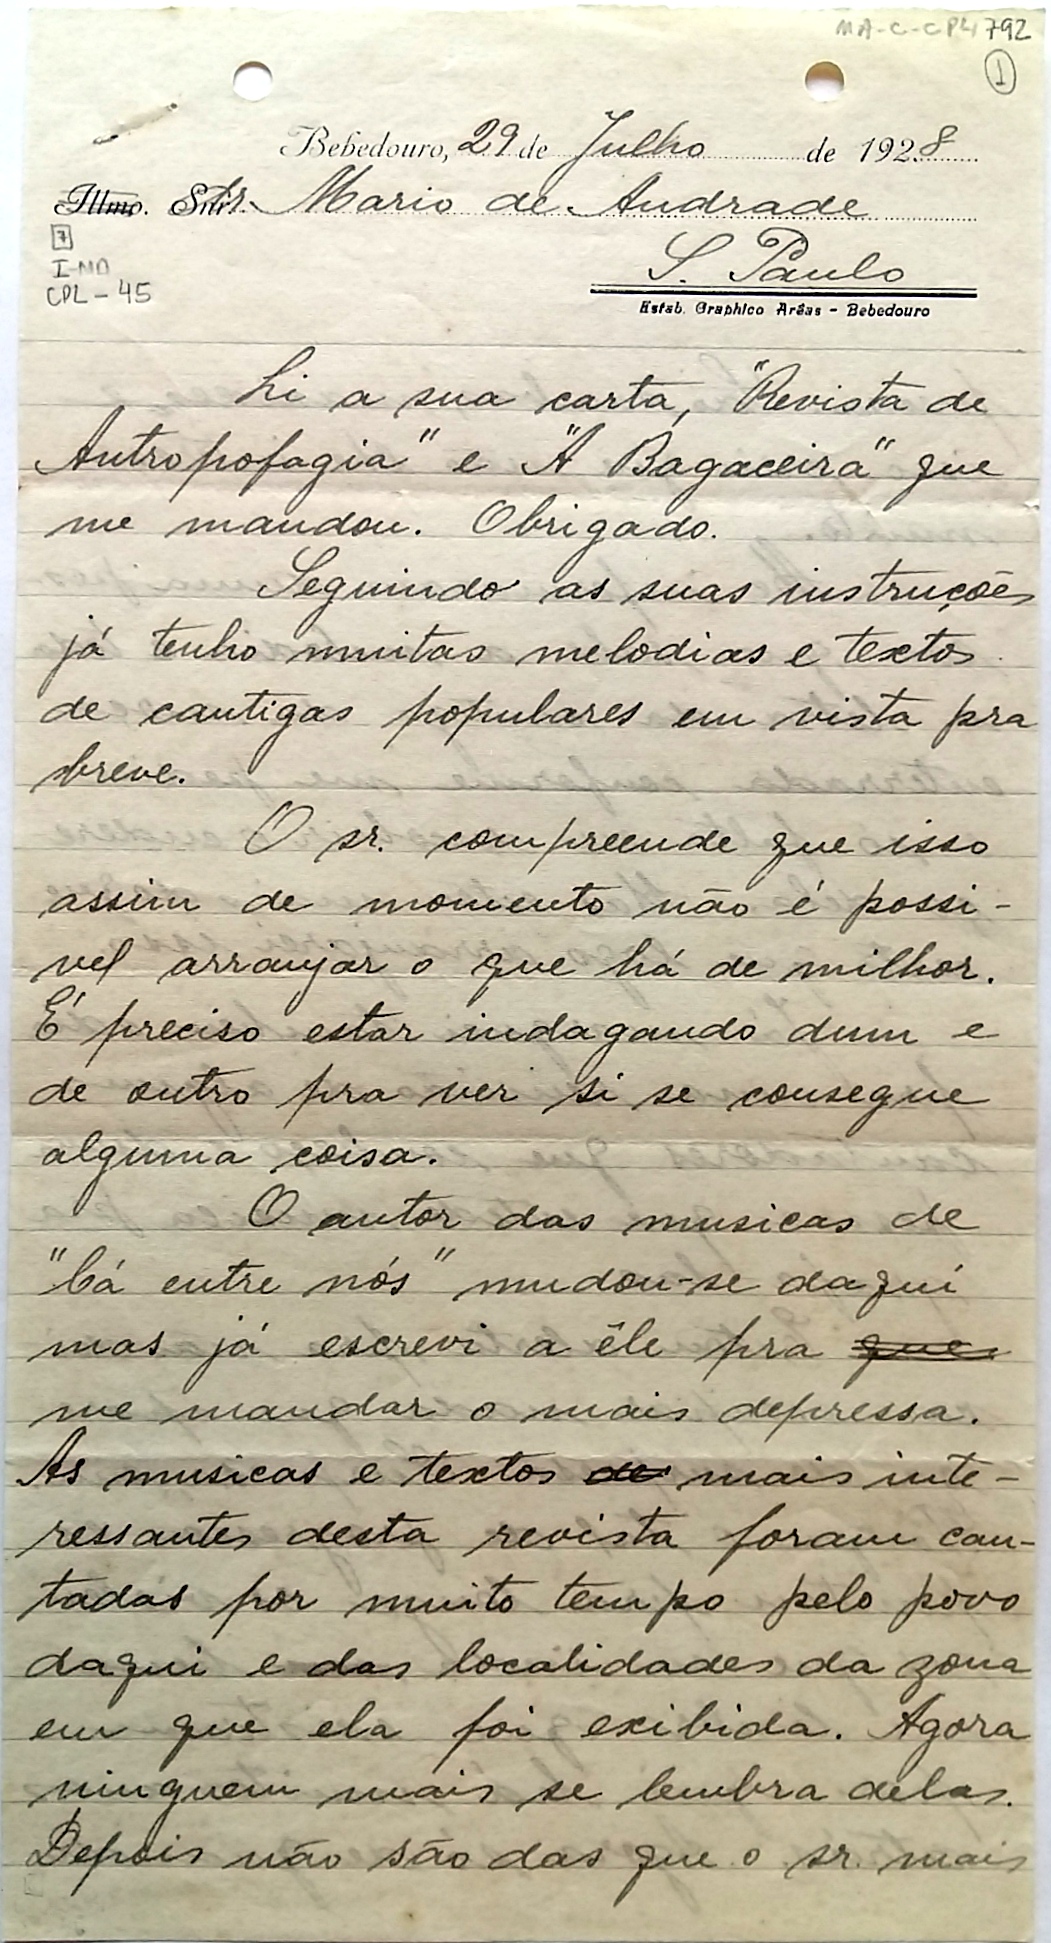 MA-C-CPL 792
1
Bebedouro, 29 de Julho de 1928
Illmo. Snr. Sr. Mario de Andrade
7
S. Paulo
I-MA
CPL-45
Estab. Graphico Arêas - Bebedouro
Li a sua carta, "Revista de
Antropofagia" e "A Bagaceira" que
me mandou. Obrigado.
Seguindo as suas instruções
já tenho muitas melodias e textos
de cantigas populares em vista pra
breve.
O sr. compreende que isso
assim de momento não é possi-
vel arranjar o que há de milhor.
É preciso estar indagando dum e
de outro pra ver si se consegue
alguma coisa.
O autor das musicas de
"Cá entre nós" mudou-se daquí
mas já escrevi a êle pra que
me mandar o mais depressa.
As musicas e textos de mais inte-
ressantes desta revista foram can-
tadas por muito tempo pelo povo
daqui e das localidades da zona
em que ela foi exibida. Agora
ninguem mais se lembra delas.
Depois não são das que o sr. mais